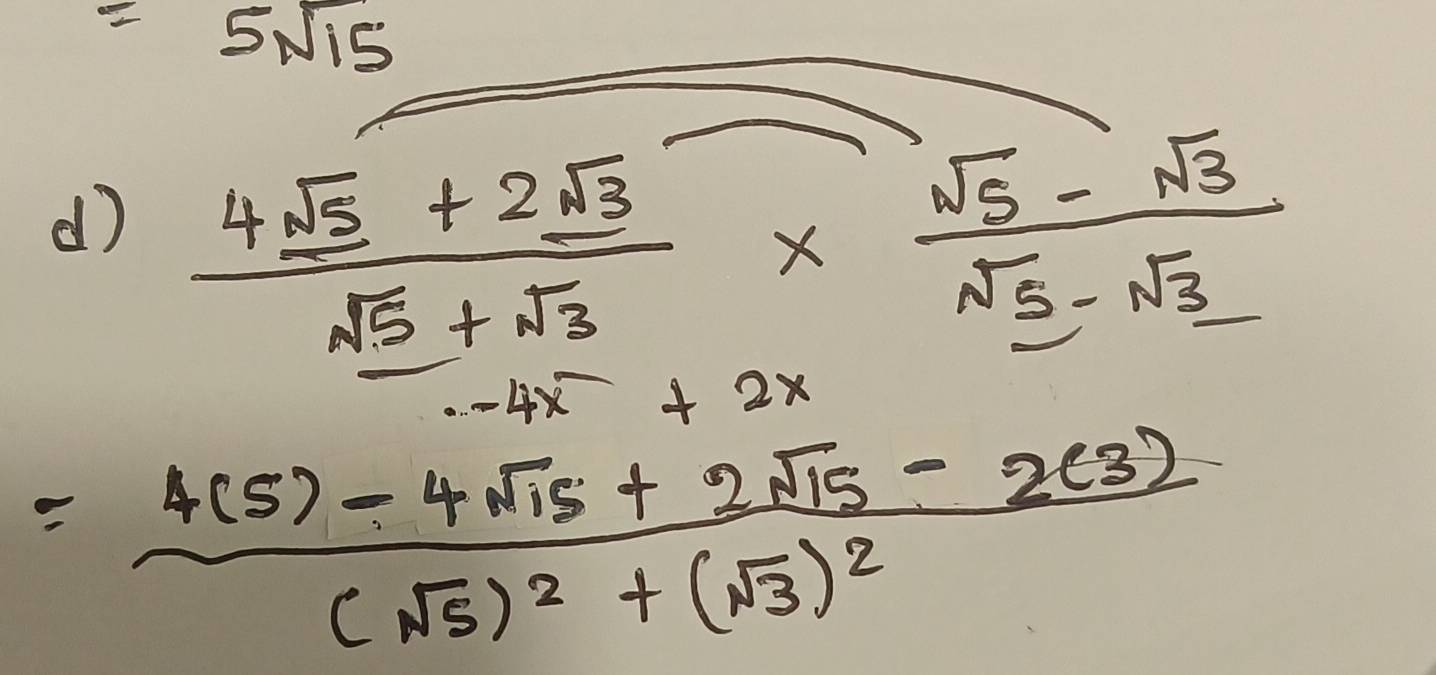 = 5√15
d) (4√5 + 2√3)/(√5 + √3) × (√5 - √3)/(√5 - √3)
-4x + 2x
= (4(5) - 4√15 + 2√15 - 2(3))/((√5)² + (√3)²)